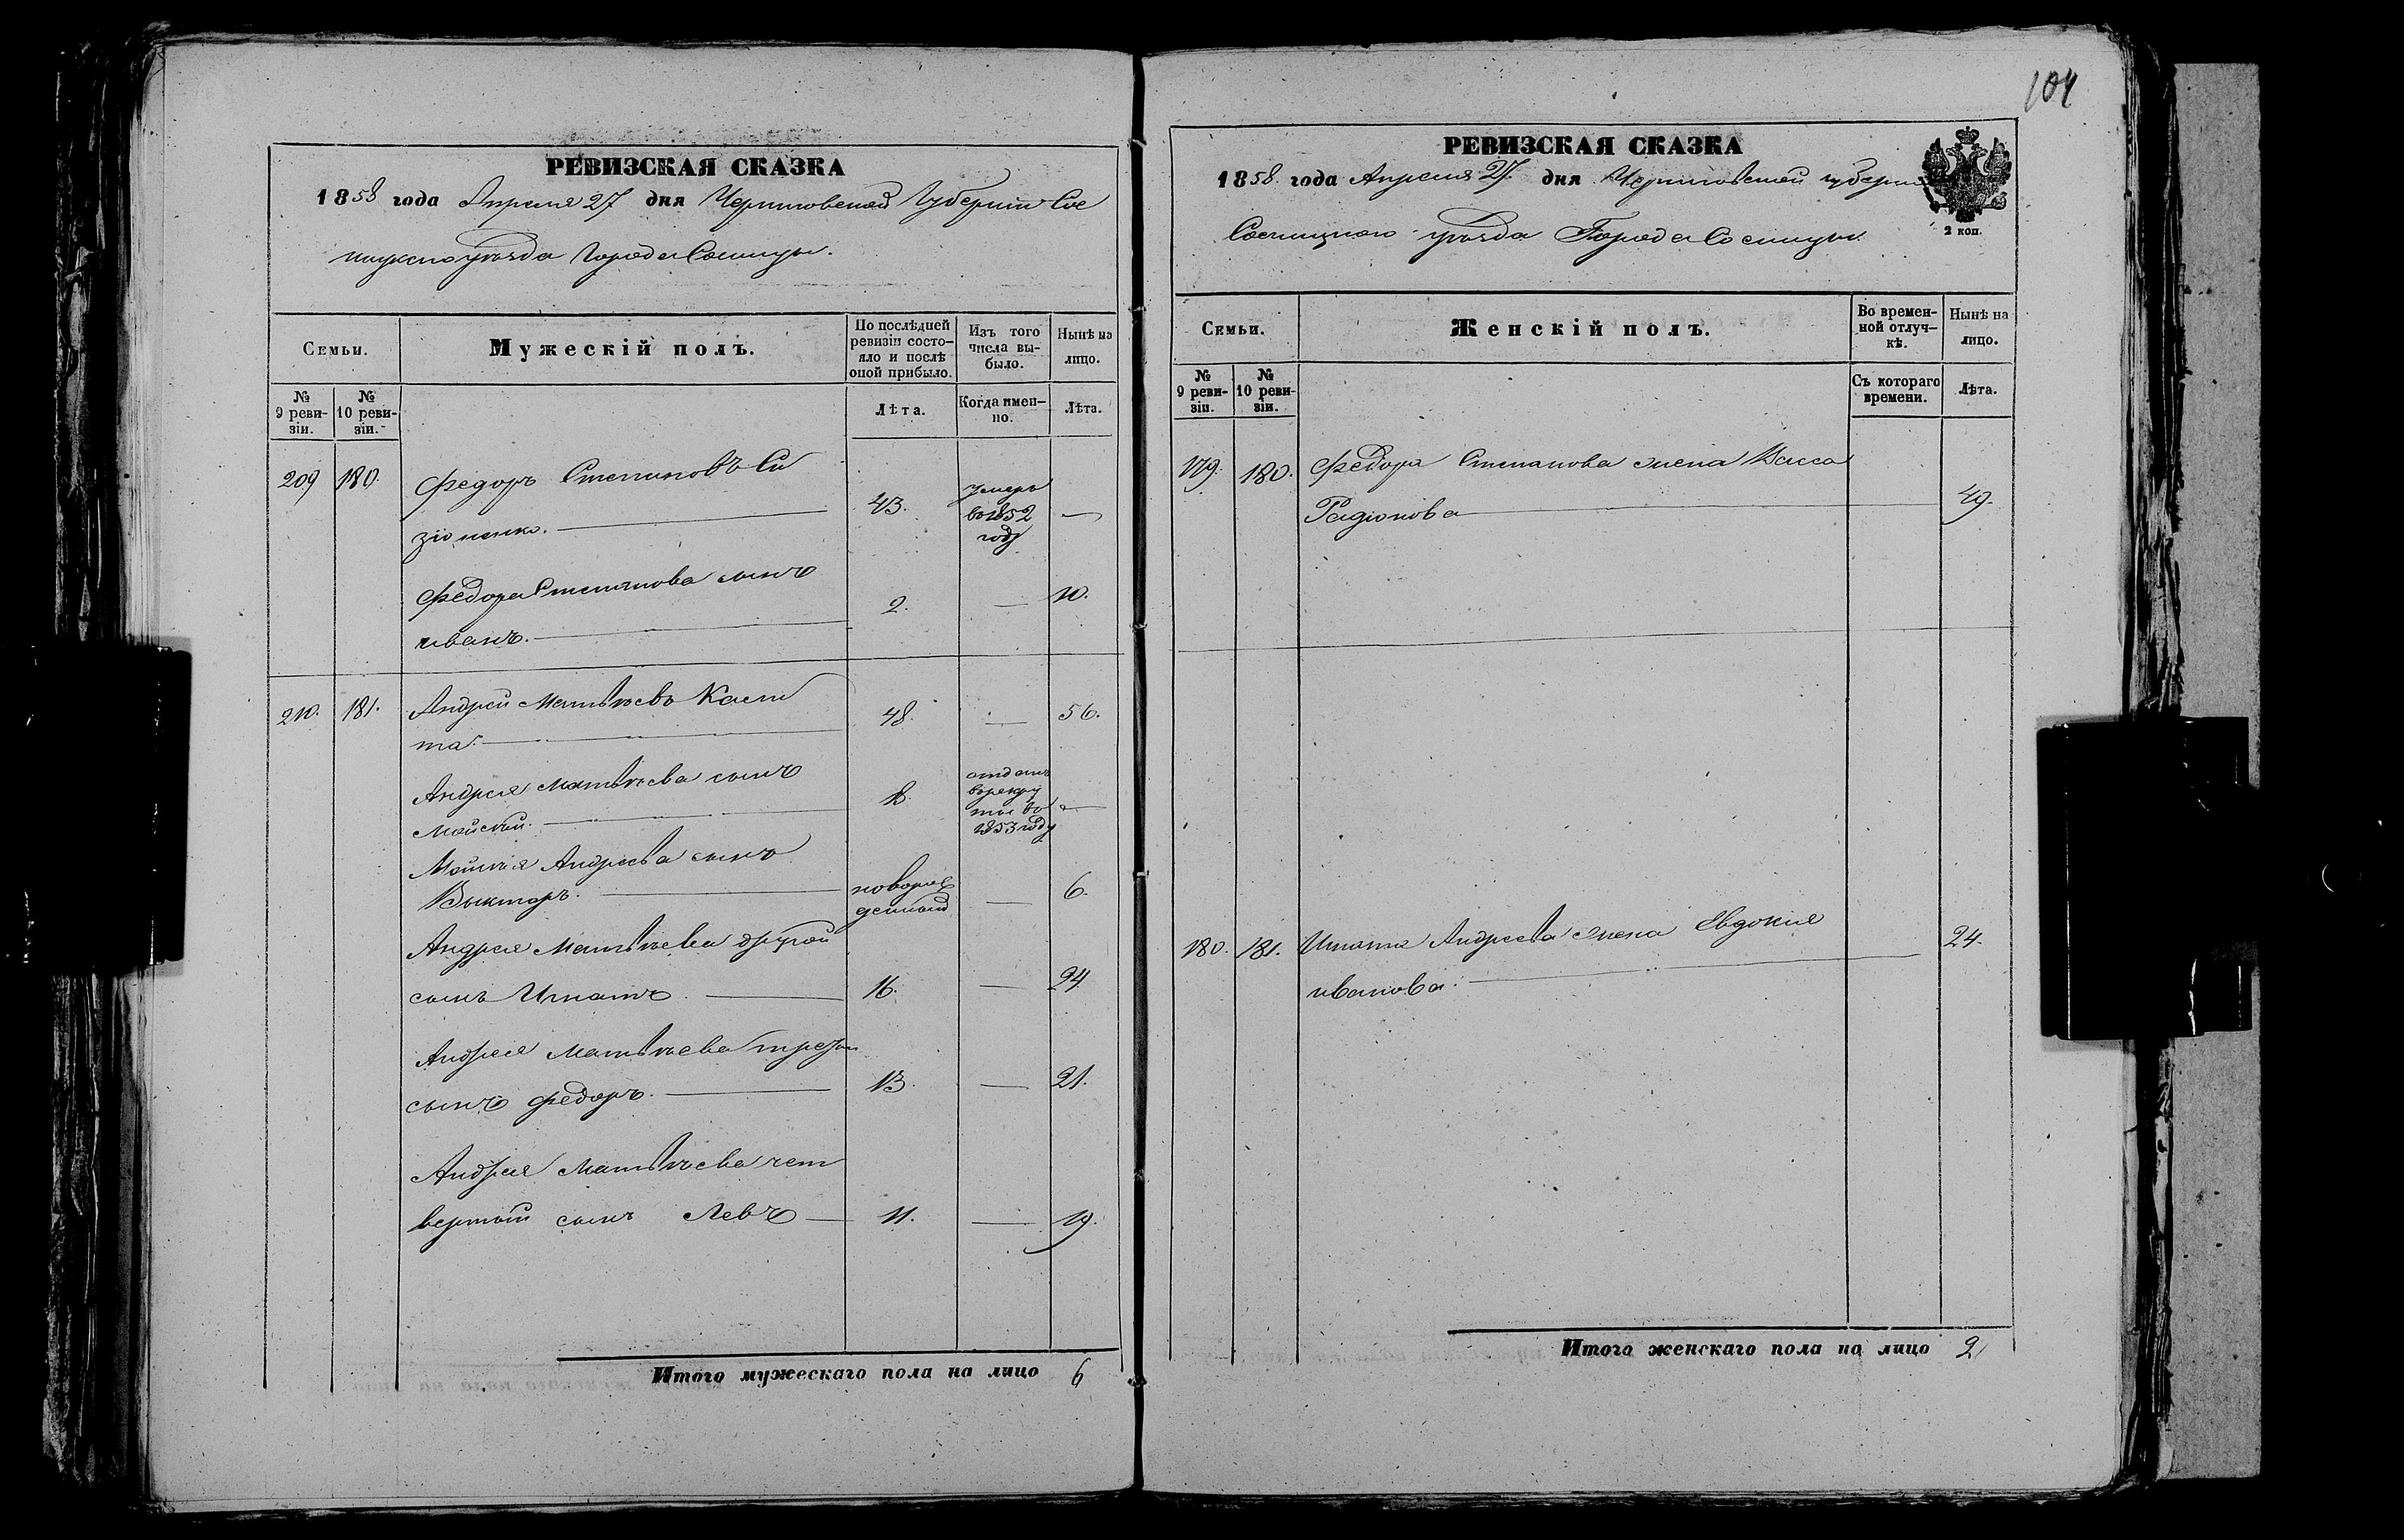 РЕВИЗСКАЯ СКАЗКА
1858 года Апреля 27 дня Черниговской Губернии Сос
ницкого уезда Города Сосницы.
Семьи.
Мужескій полъ.
По послѣдней
ревизіи состо-
яло и послѣ
оной прибыло.
Изъ того
числа вы-
было.
Нынѣ на
лицо.
№
9 реви-
зіи.
№
10 реви-
зіи.
Лѣта.
Когда имен-
но.
Лѣта.
209 180. Федоръ Степановъ Си
зіоненко. 43. умеръ
в 1852
году
Федора Степанова сынъ
иванъ. 2. 10.
210. 181. Андрей Матвѣевъ Касп
та. 48. 56.
Андрея Матвѣева сынъ
Мойсей. отданъ
в рекру
ты в
1853 году
Мойсея Андреева сынъ
Выкторъ. новорож
денный 6.
Андрея Матвѣева другой
сынъ Игнатъ. 16. 24
Андрея Матвѣева третий
сынъ Федоръ. 13. 21.
Андрея Матвѣева чет
вертый сынъ Левъ 11. 19.
Итого мужескаго пола на лицо 6
104
РЕВИЗСКАЯ СКАЗКА
1858. года Апреля 27. дня Черниговской губернии
2 коп.
Сосницкого уезда Города Сосницы.
Семьи.
Женскій полъ.
Во времен-
ной отлуч-
кѣ.
Нынѣ на
лицо.
№
9 реви-
зіи.
№
10 реви-
зіи.
Съ котораго
времени.
Лѣта.
179. 180. Федора Степанова жена Васса
Радіонова 49.
180. 181. Игната Андреева жена Евдокия
иванова. 24.
Итого женскаго пола на лицо 2